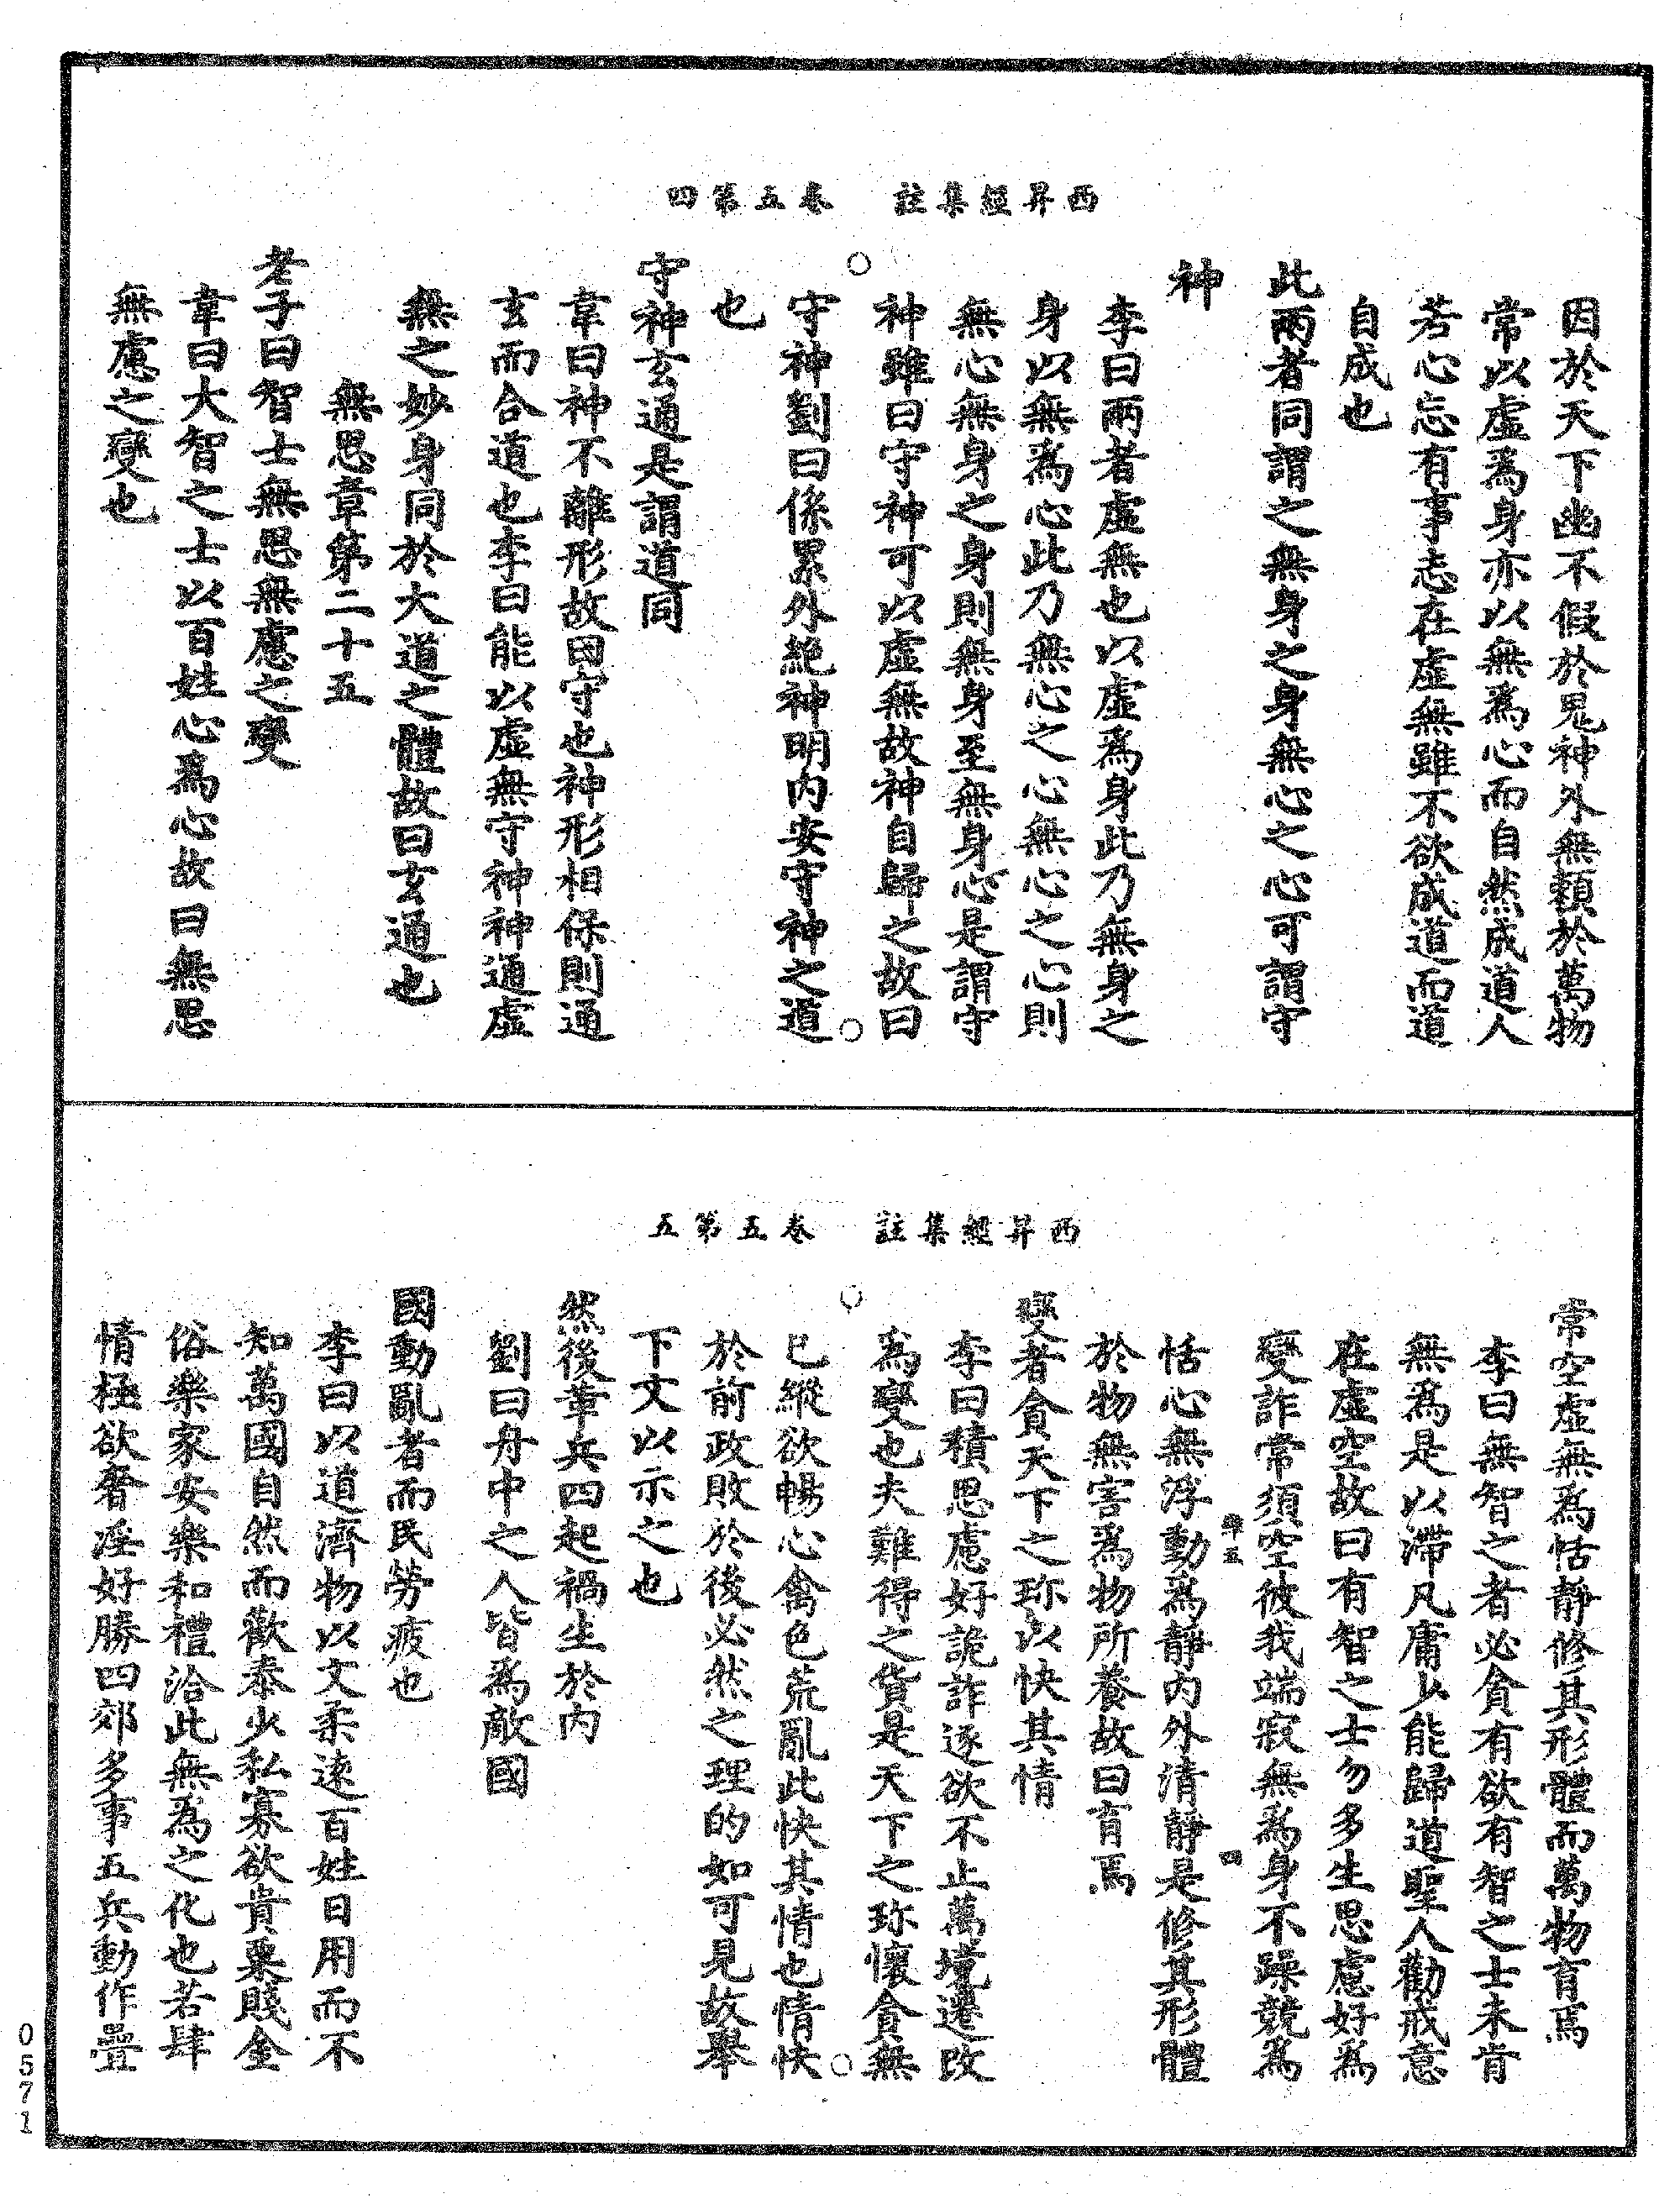 西昇經集註 卷五第四
因於天下幽不假於鬼神外無賴於萬物
常以虛為身亦以無為心而自然成道人
若心忘有事志在虛無雖不欲成道而道
自成也
此兩者同謂之無身之身無心之心可謂守
神
李曰兩者虛無也以虛為身此乃無身之
身以無為心此乃無心之心無心之心則
無心無身之身則無身至無身心是謂守
神雖曰守神可以虛無故神自歸之故曰
守神劉曰係累外絕神明內安守神之道
也
守神玄通是謂道同
韋曰神不離形故曰守也神形相保則通
玄而合道也李曰能以虛無守神神通虛
無之妙身同於大道之體故曰玄通也
無思章第二十五
老子曰智士無思無慮之變
韋曰大智之士以百姓心為心故曰無思
無慮之變也
西昇經集註 卷五第五
常空虛無為恬靜修其形體而萬物育焉
李曰無智之者必貪有欲有智之士未肯
無為是以滯凡庸少能歸道聖人勸戒意
在虛空故曰有智之士勿多生思慮好為
變詐常須空彼我端寂無為身不躁競為
維五 四
恬心無浮動為靜內外清靜是修其形體
於物無害為物所養故曰育焉
變者貪天下之珎以快其情
李曰積思慮好詭詐逐欲不止萬境遷改
為變也夫難得之貨是天下之珎懷貪無
已縱欲暢心禽色荒亂此快其情也情快
於前政敗於後必然之理的如可見故舉
下文以示之也
然後革兵四起禍生於內
劉曰舟中之人皆為敵國
國動亂者而民勞疲也
李曰以道濟物以文柔逺百姓日用而不
知萬國自然而歡泰少私寡欲貴粟賤金
俗樂家安樂和禮洽此無為之化也若肆
情極欲奢淫好勝四郊多事五兵動作疊
0571